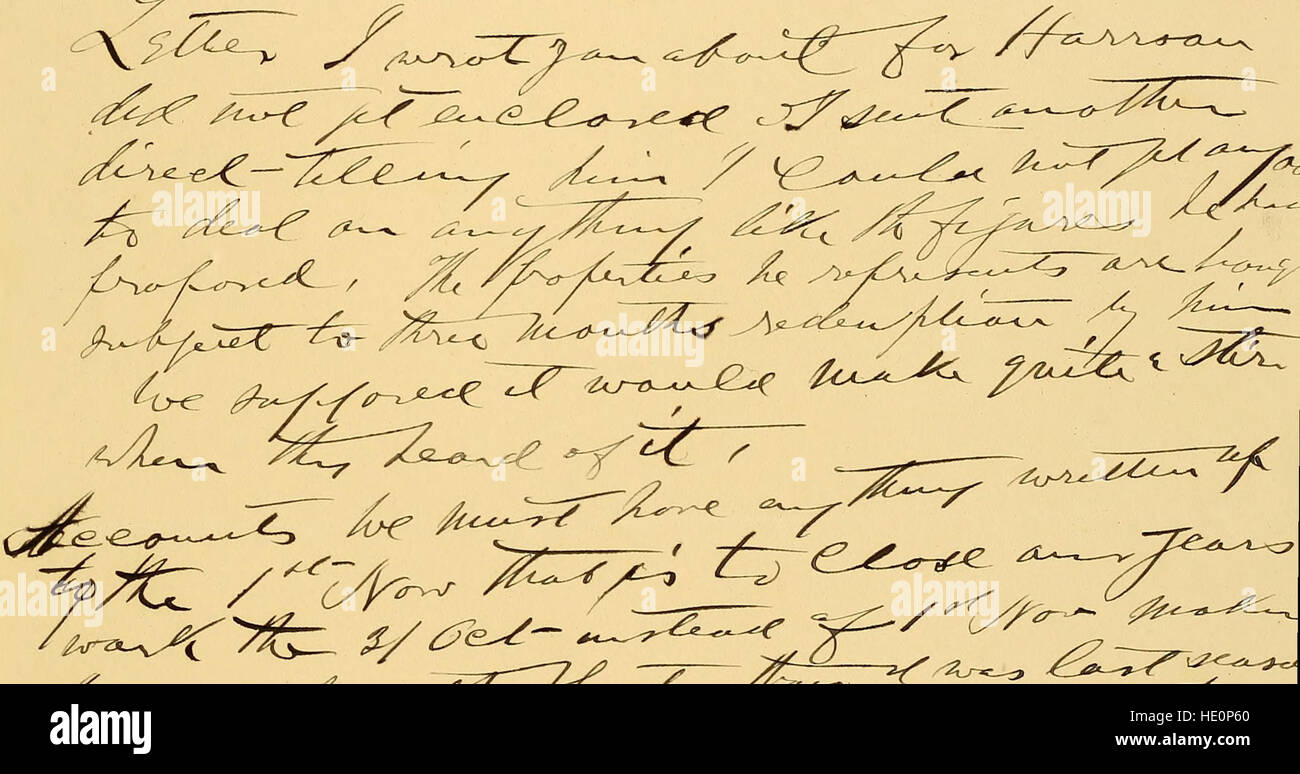 Letter I wrot you about for Harroan
did not gt enclosed I sent another
direct - telling him I could not gt any
to deal on anything like th figures he had
proposed. The properties he represents are
subject to three months redemption by him
We supposed it would make quite a stir
when they heard of it,
Accounts We must have anything written up
to the 1st Nov that is to close our years
work the 31 Oct instead of 1st Nov
was last
alamy
Image ID: HE0P60
www.alamy.com